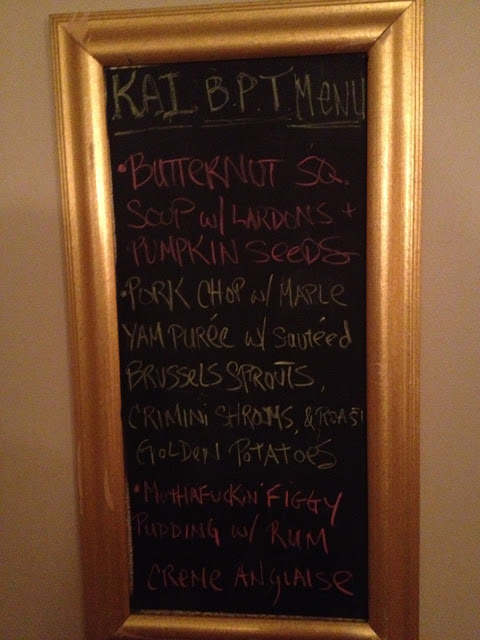 KAI B.P.T MENU
•BUTTERNUT SQ.
SOUP w/ LARDONS +
PUMPKIN SEEDS
•PORK CHOP w/ MAPLE
YAM PURÉE w/ SAUTÉED
BRUSSELS SPROUTS,
CRIMINI SHROOMS, & ROAST
GOLDEN POTATOES
•MUTHAFUCKIN' FIGGY
PUDDING w/ RUM
CREME ANGLAISE